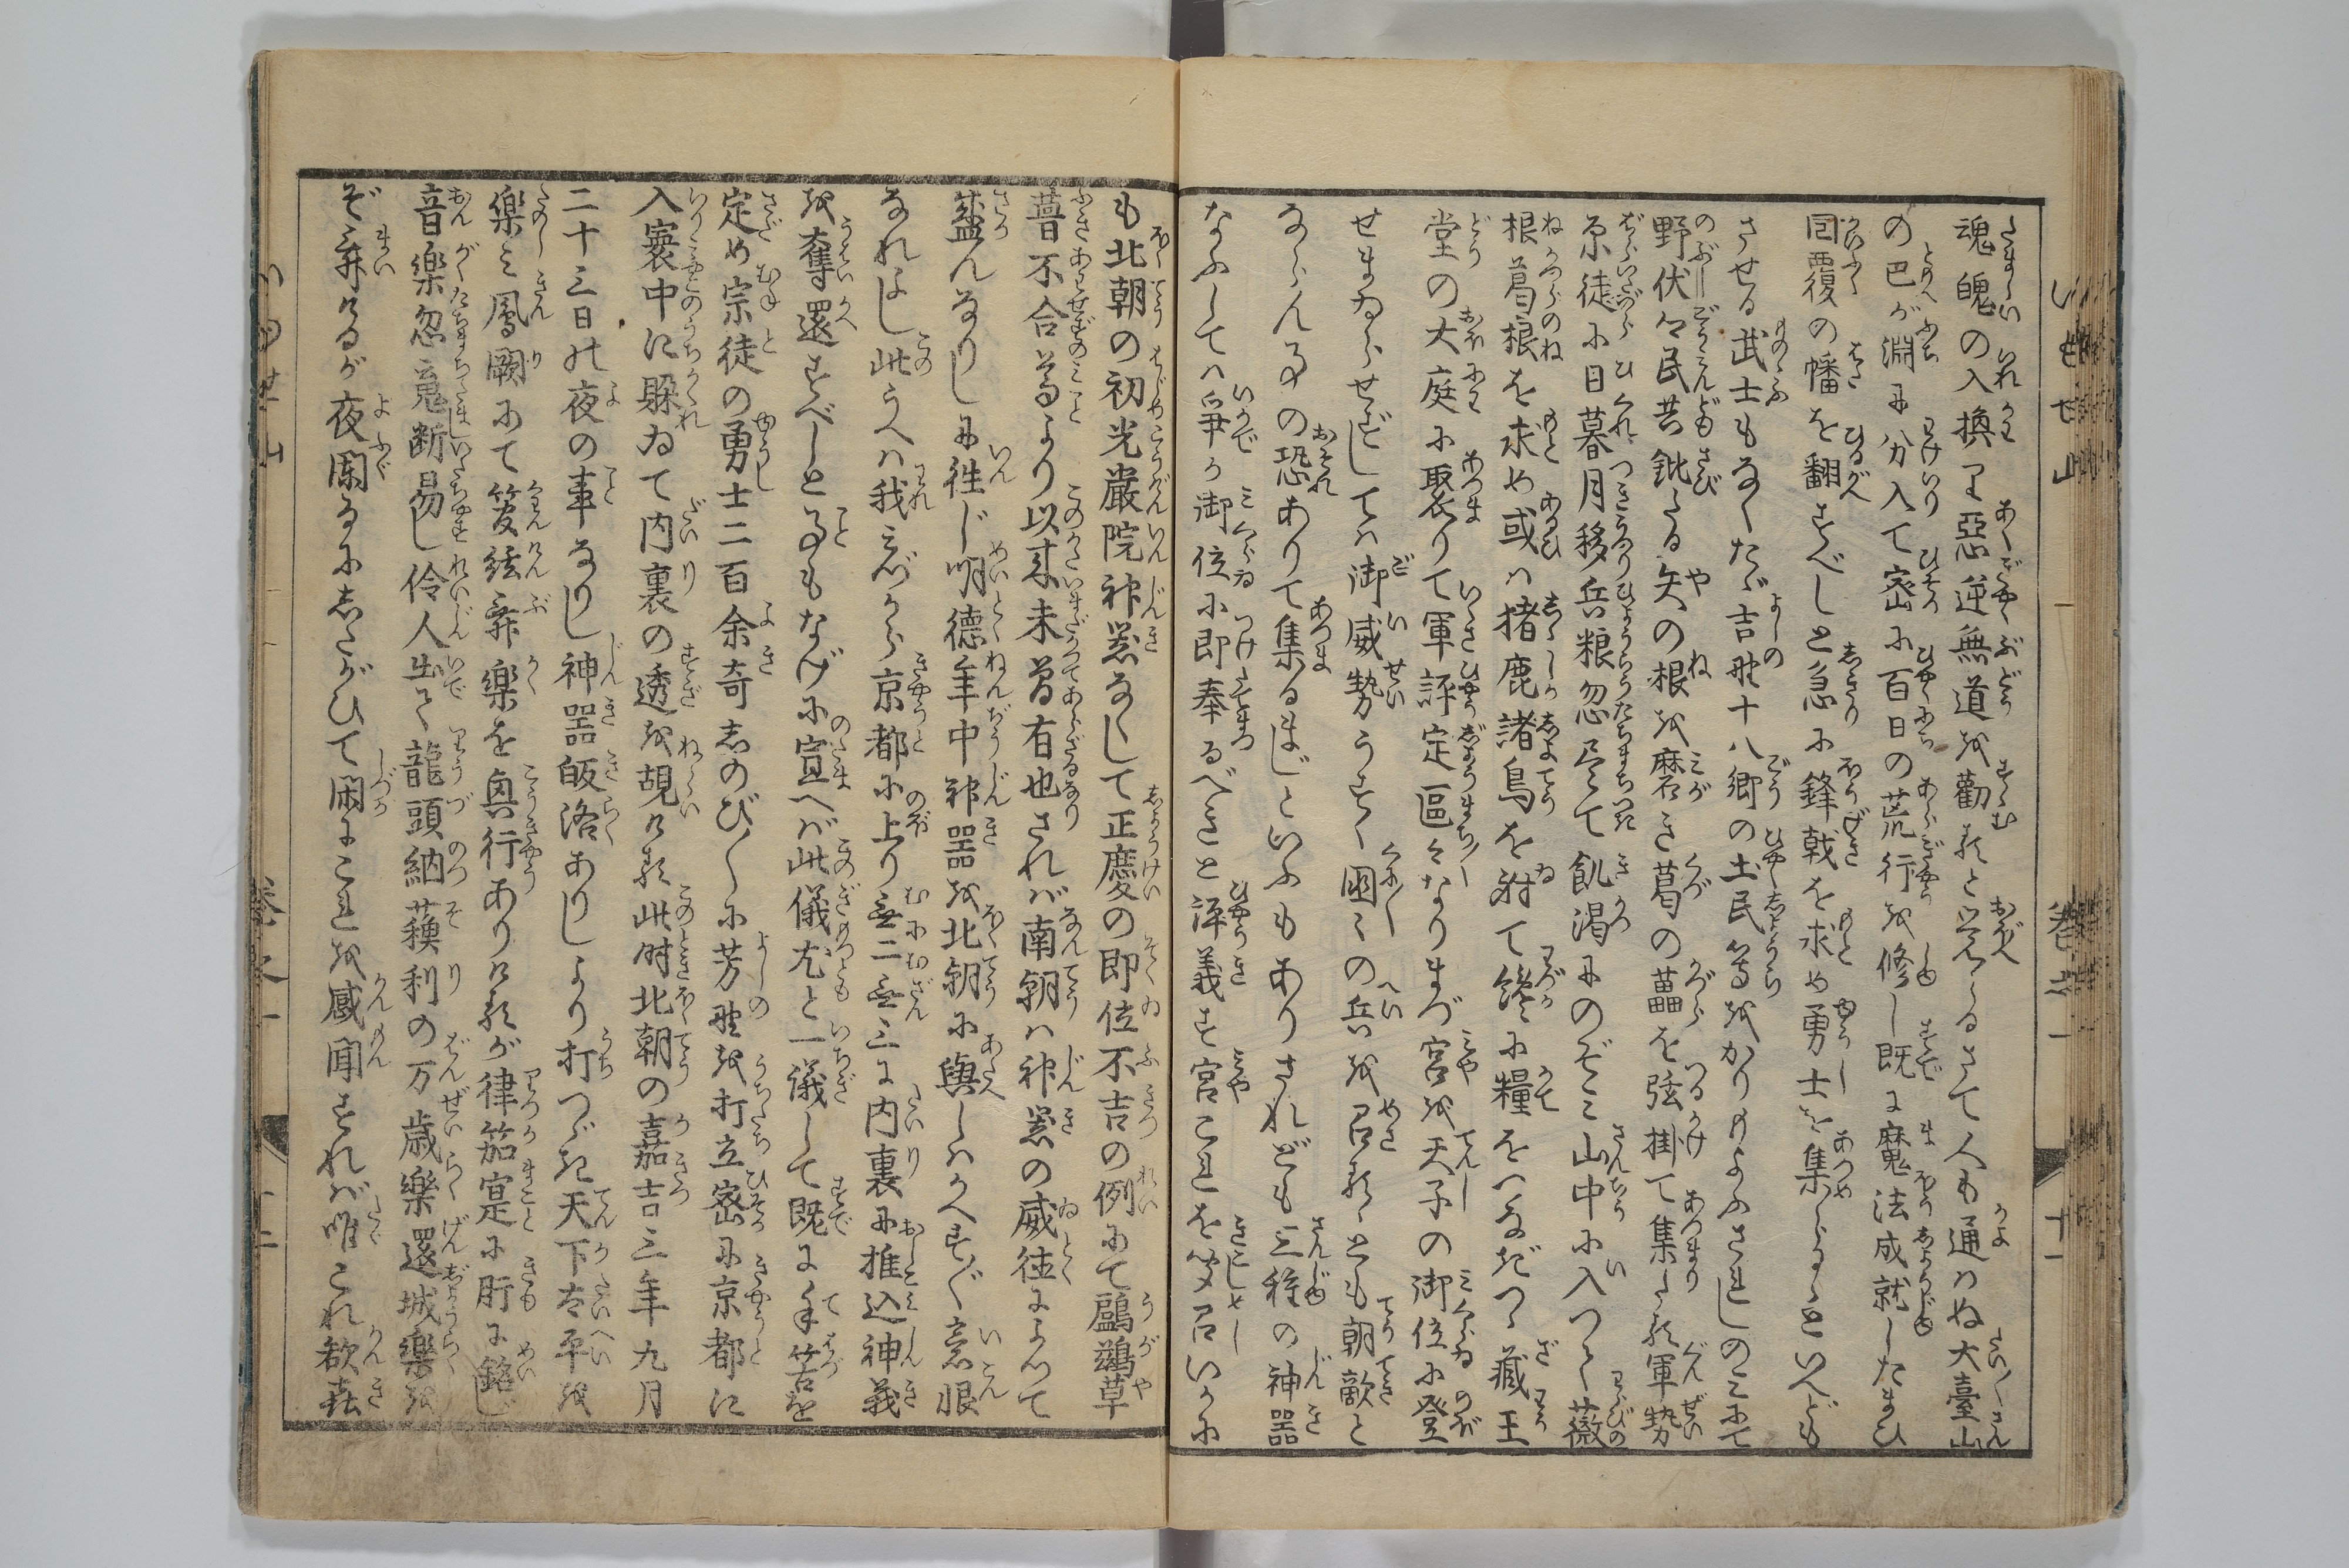 魂魄の入換り惡逆無道を勸ると覚ゆるさて人も通はぬ大臺山
の巴が淵に分入て密に百日の荒行を修し既に魔法成就したまひ
囘覆の幡を翻すべしと急に鋒戟を求め勇士を集らるゝといへども
させる武士もなくたゞ吉野十八郷の土民等をかりもよふされしのみにて
野伏々民共鈚たる矢の根を磨き葛の藟を弦掛て集たる軍勢
原徒に日暮月移兵粮忽尽て飢渇にのぞみ山中に入つて薇
根葛根を求め或は猪鹿諸鳥を射て纔に糧をつなぎつゝ藏王
堂の大庭に聚りて軍評定區々なりまづ宮を天子の御位に登
せまゐらせずしては御威勢うすく国々の兵を召るゝとも朝敵と
ならん事の恐ありて集るまじといふもありされども三種の神器
なふしてはいかでか御位に即奉るべきと評義す宮これを笑召いかに
も北朝の初光嚴院神器なくして正慶の即位不吉の例にて鸕鷀草
葺不合尊より以来未曽有也されば南朝は神器の威徳によつて
盛んなりしに往じ明徳年中神器を北朝に與しはかへすがへす意恨
なれよし此うへは我みづから京都に上り無二無三に内裏に推込神義
を奪還すべしと事もなげに宣へば此儀尤と一議して既に手筈を
定め宗徒の勇士二百余奇志のび〳〵に芳野を打立密に京都に
入寰中に躱ゐて内裏の透を覘ける此時北朝の嘉吉三年九月
二十三日の夜の事なりし神器皈洛ありしより打つゞき天下太平を
樂み鳳闕にて管絃舞樂を興行ありけるが律笳寔に肝に銘じ
音樂忽鬼断易し伶人出て龍頭納蘓利の万歳樂還城樂を
ぞ舞けるが夜闌るにしたがひて閑にこれを感聞すれば唯これ歓㐂